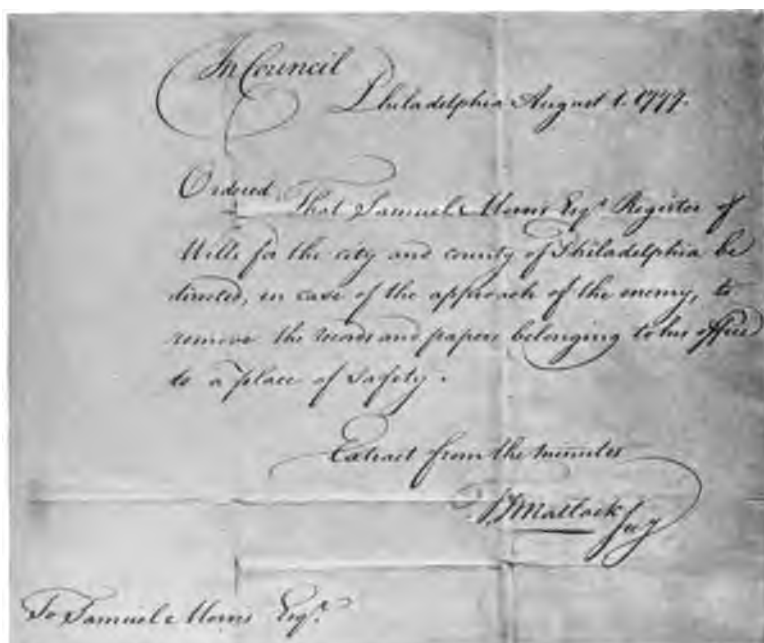 In Council
Philadelphia August 1. 1777.
Ordered, That Samuel Morris Esqr Register of
Wills for the city and county of Philadelphia be
directed, in case of the approach of the enemy, to
remove the records and papers belonging to his office
to a place of safety.
Extract from the minutes
T Matlack Secy
To Samuel Morris Esqr.